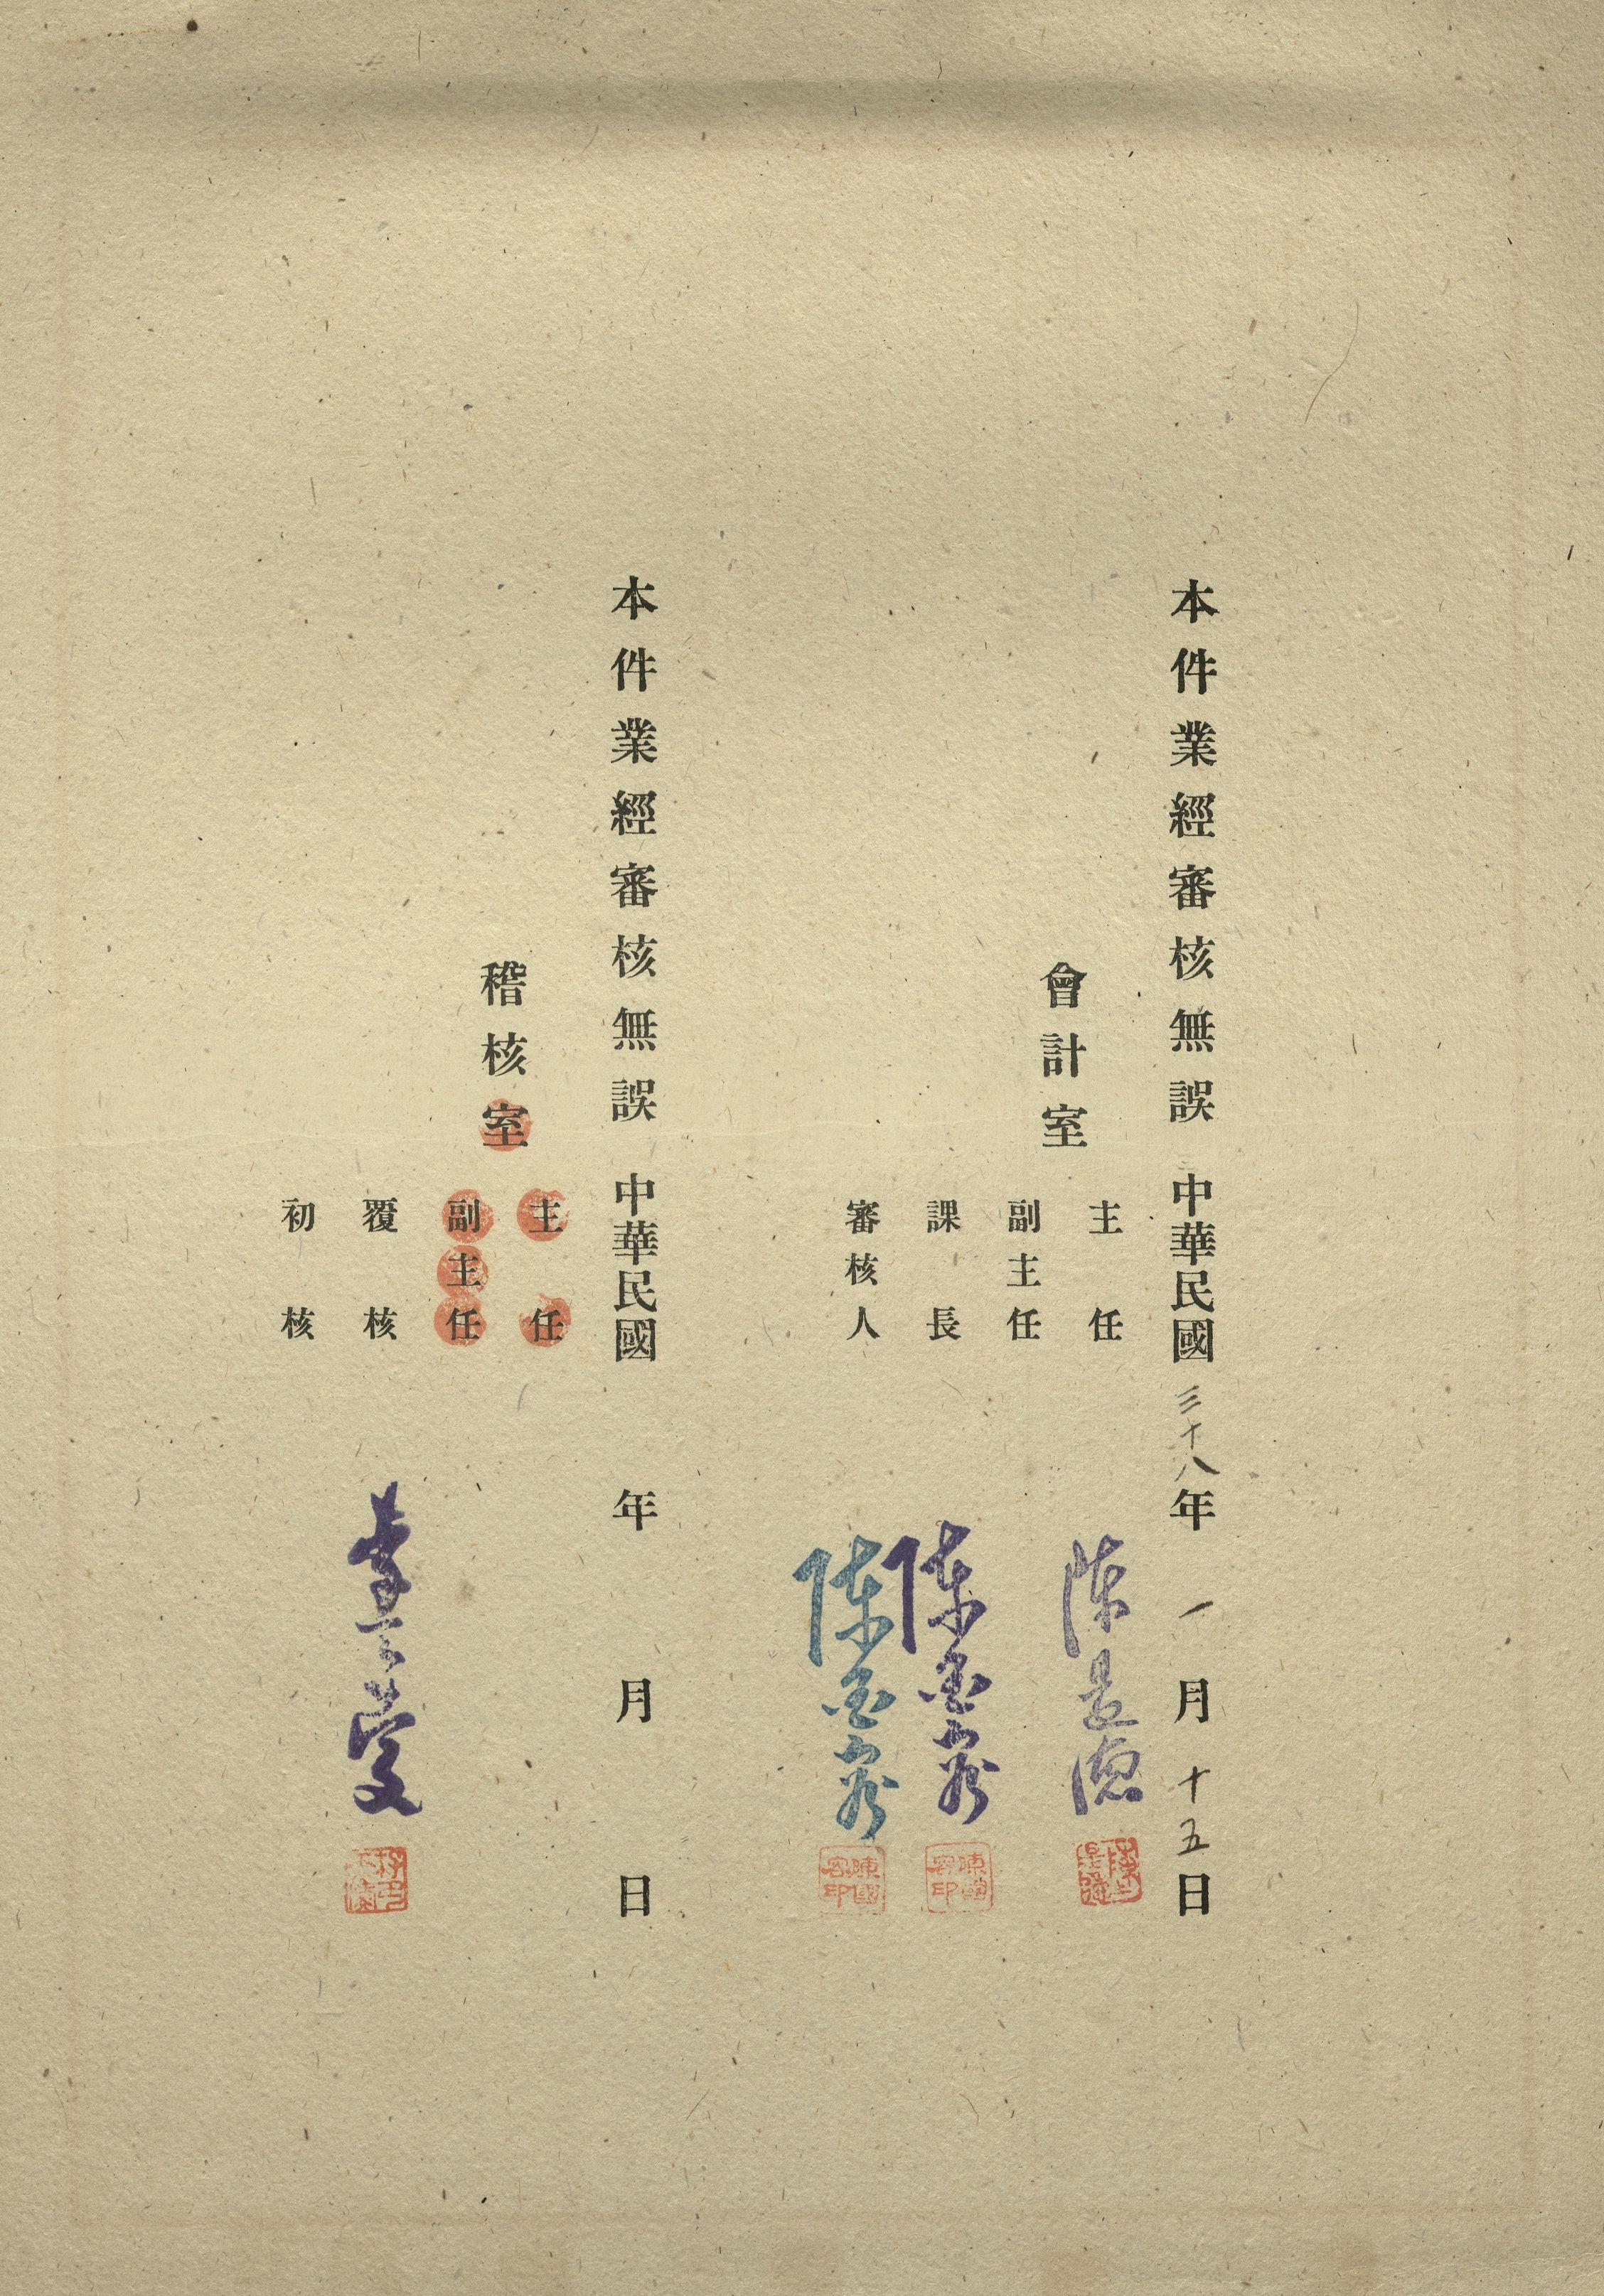 本件業經審核無誤 中華民國三十八年一月十五日
會計室
主任 陳
副主任
課長 陳
審核人 陳
本件業經審核無誤 中華民國 年 月 日
稽核室
主任
副主任
覆核
初核